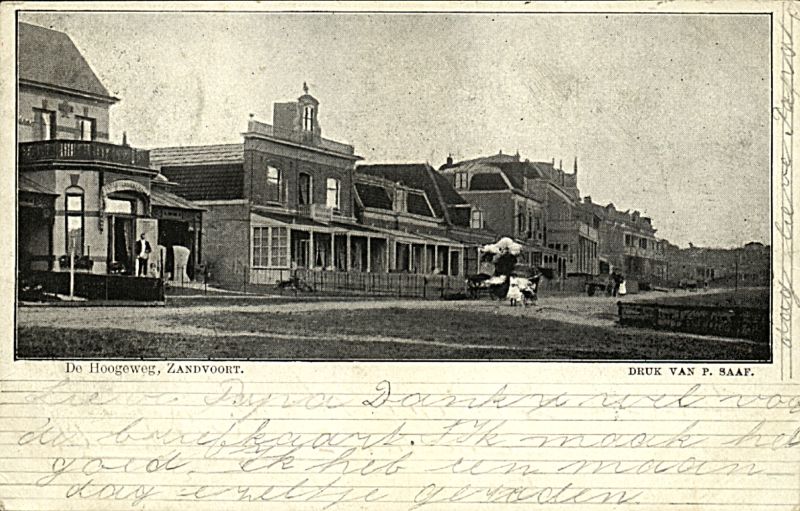 De Hoogeweg, ZANDVOORT.
DRUK VAN P. SAAF.
Lieve Papa Dank u wel voo
de briefkaart. Ik maak het
goed, ik heb een maan-
dag ezeltje gereden.
dag lieve